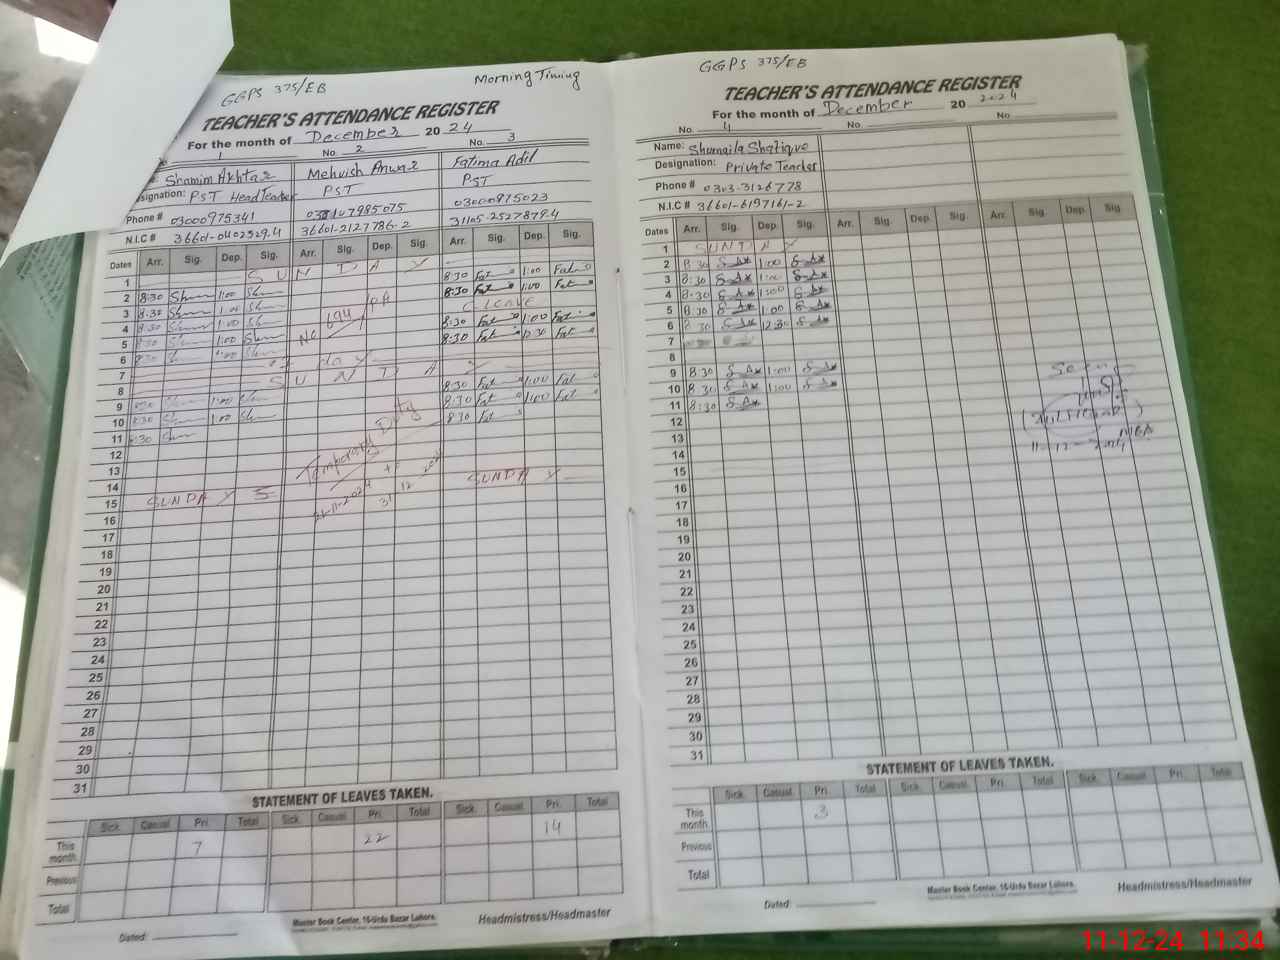 GGPS 375/EB
Morning Timing
TEACHER'S ATTENDANCE REGISTER
For the month of December 2024
1 No. 2 No. 3
Shamim Akhtar Mehvish Anwar Fatima Adil
PST HeadTeacher PST PST
Phone # 03000975341 03000975023
N.I.C # 36601-2127786-2 31105-2527879-4
Dates Arr. Sig. Dep. Sig. Arr. Sig. Dep. Sig. Arr. Sig. Dep. Sig.
1 SUNDAY
2 8:30 1:00 8:30 Fat 1:00 Fat
3 8:30 1:00 8:30 Fat 1:00 Fat
4 8:30 1:00 C LEAVE
5 8:30 1:00 8:30 Fat 1:00 Fat
6 8:30 8:30 Fat Fat
7
8 SUNDAY
9 8:30 1:00 8:30 Fat 1:00 Fat
10 8:30 1:00 8:30 Fat 1:00 Fat
11 8:30 8:30 Fat
12
13
14
15 SUNDAY SUNDAY
Temporary Duty
16
17
18
19
20
21
22
23
24
25
26
27
28
29
30
31
STATEMENT OF LEAVES TAKEN.
Sick. Casual. Pri. Total Sick. Casual. Pri. Total Sick. Casual. Pri. Total
This month 7 22 14
Previous
Total
Dated:
Master Book Center, 16-Urdu Bazar Lahore.
Headmistress/Headmaster
GGPS 375/EB
TEACHER'S ATTENDANCE REGISTER
For the month of December 20 2024
No. 4 No. No.
Name: Shumaila Shafique
Designation: Private Teacher
Phone # 0303-3126778
N.I.C # 36601-6197161-2
Dates Arr. Sig. Dep. Sig. Arr. Sig. Dep. Sig. Arr. Sig. Dep. Sig.
1 SUNDAY
2 8:30 1:00
3 8:30 1:00
4 8:30 1:00
5 8:30 1:00
6 8:30 12:30
7
8
9 8:30 1:00
10 8:30 1:00
11 8:30
12
13
14
15
16
17
18
19
20
21
22
23
24
25
26
27
28
29
30
31
STATEMENT OF LEAVES TAKEN.
Sick. Casual. Pri. Total Sick. Casual. Pri. Total Sick. Casual. Pri. Total
This month 3
Previous
Total
Dated:
Master Book Center, 16-Urdu Bazar Lahore.
Headmistress/Headmaster
11-12-24 11:34